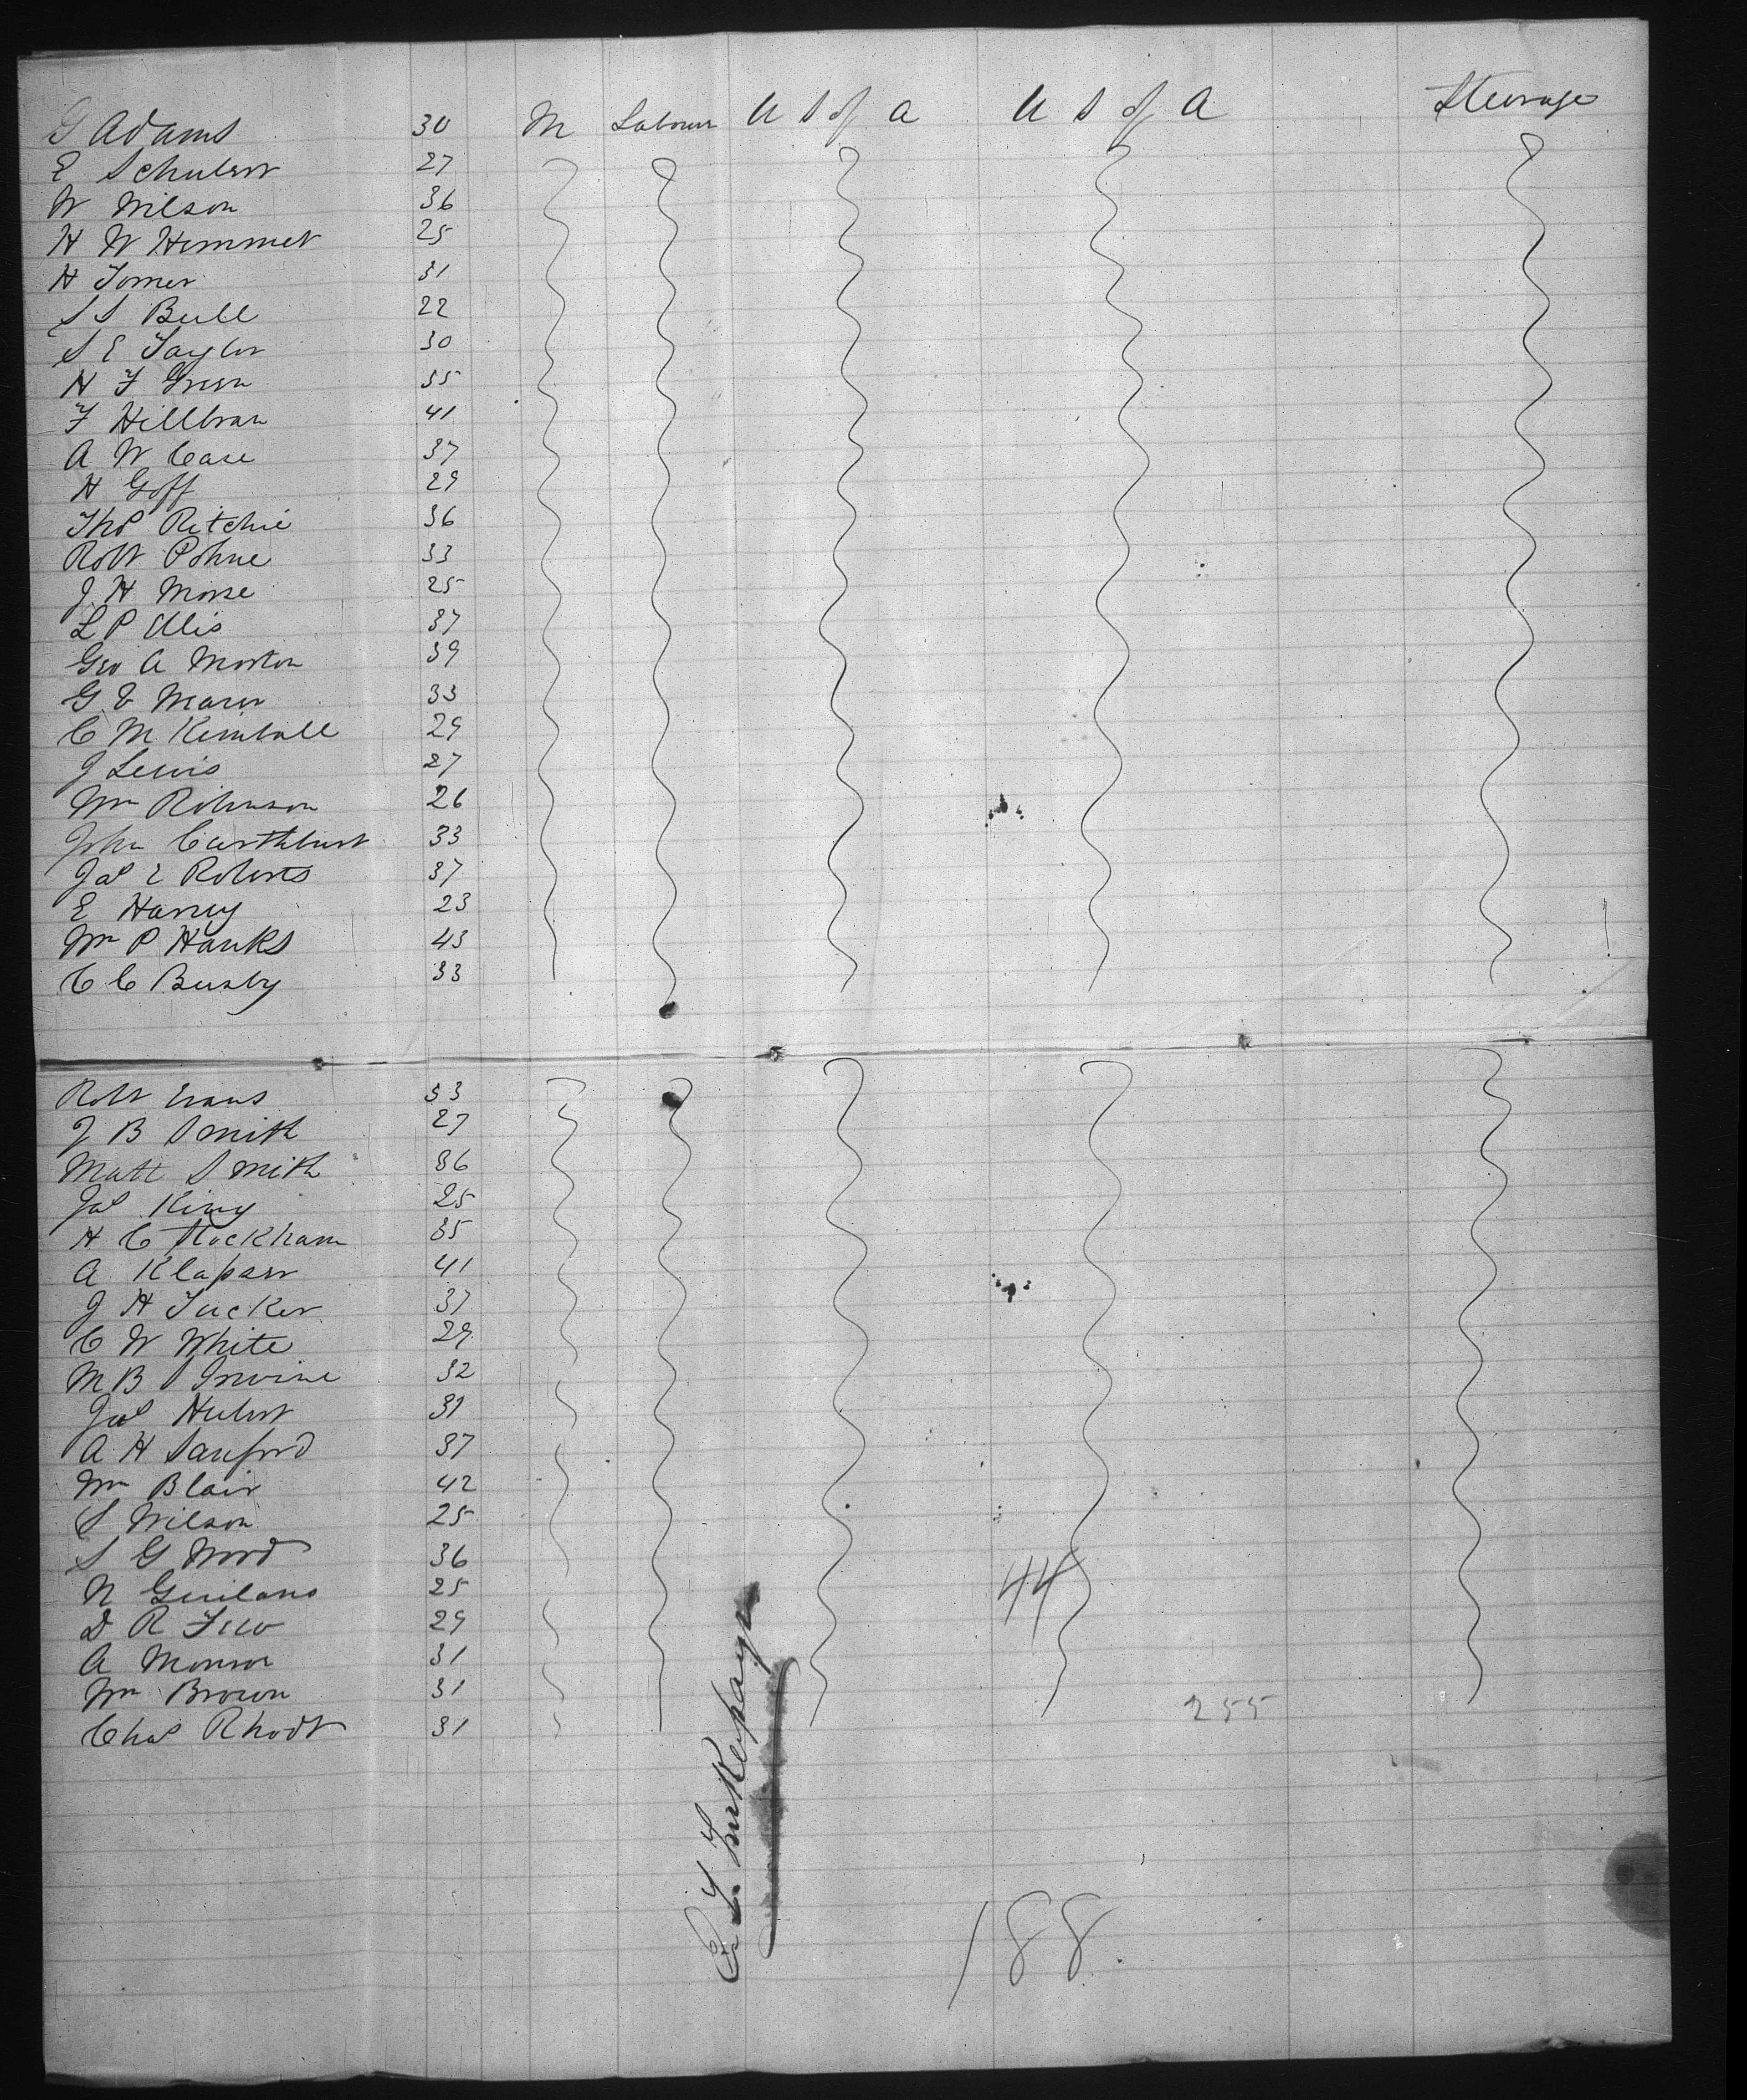 G Adams 30 M Labourer U S of A U S of A Steerage
E Schuber 27
W Wilson 36
H W Hemmer 25
H Tomer 31
S S Bull 22
S E Taylor 30
H F Green 35
F Hillbran 41
A W Case 37
H Goff 29
Thos Ritchie 36
Robt Pohne 33
J H Morse 25
L P Ellis 37
Geo A Morton 39
G E 33
C M Kimball 29
J Lewis 27
Wm Robinson 26
John 33
Jas E Roberts 37
E Harvey 23
Wm P Hanks 43
C C Busby 33
Robt Evans 33
J B Smith 27
Matt Smith 36
Jas King 25
H C Stockham 35
A Klapser 41
J H Tucker 37
C W White 29
M B Irvine 32
Jas Huber 31
A H Sanford 37
Wm Blair 42
S Wilson 25
S G Word 36
N 25
D R 29
A Monroe 31
Wm Brown 31
Chas Rhodt 31
44
255
188